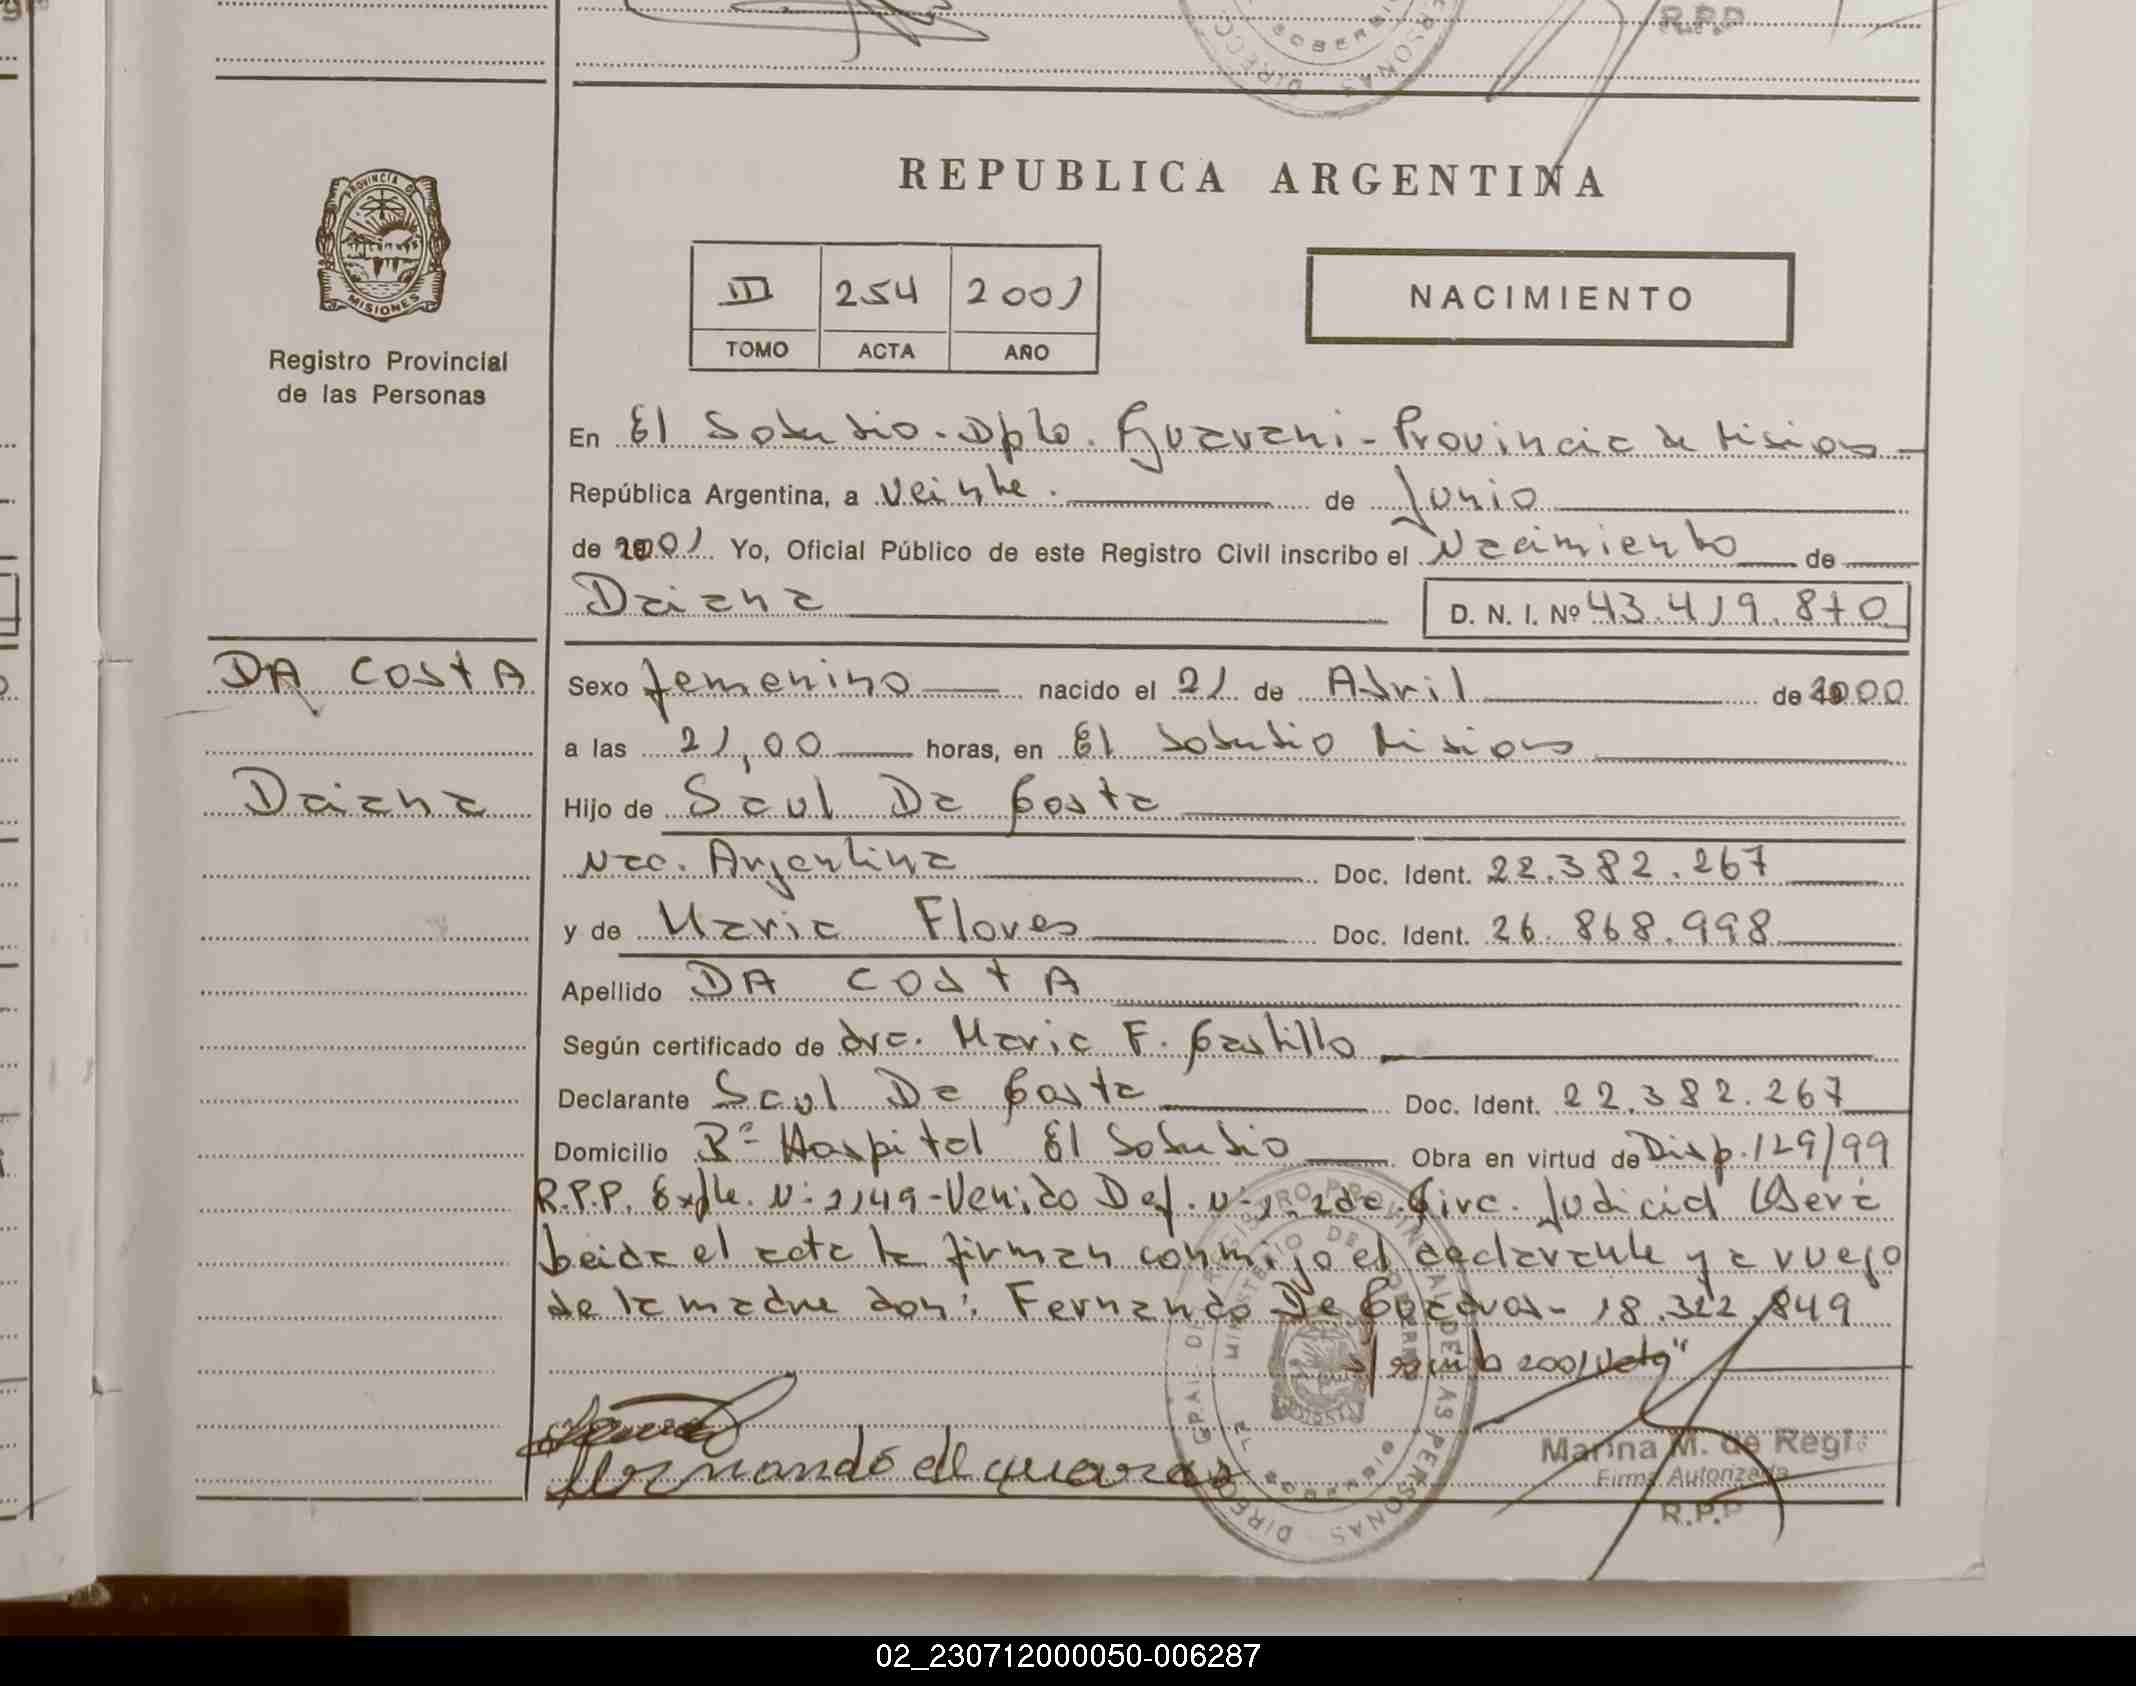 R.P.P
REPUBLICA ARGENTINA
PROVINCIA D
MISIONES
Registro Provincial
de las Personas
III 254 2001
TOMO ACTA AÑO
NACIMIENTO
En El Soberbio - Dpto. Guarani - Provincia de Misiones
República Argentina, a veinte. de Junio
de 2001 Yo, Oficial Público de este Registro Civil inscribo el Nacimiento de
Daiana D. N. I. Nº 43.419.870
DA COSTA
Daiana
Sexo femenino nacido el 21 de Abril de 2000
a las 21,00 horas, en El Soberbio Misiones
Hijo de Saul Da Costa
Nac. Argentina Doc. Ident. 22.382.267
y de Maria Flores Doc. Ident. 26.868.998
Apellido DA COSTA
Según certificado de dra. Maria F. Castillo
Declarante Saul Da Costa Doc. Ident. 22.382.267
Domicilio Bº Hospital El Soberbio Obra en virtud de Disp. 129/99
R.P.P. Expte. Nº 2149 - Venido Def. Nº 1. 2da. Circ. Judicial Oberá
Leida el acta la firman conmigo el declarante y a ruego
de la madre don: Fernando De 18.322.849
2001 Vale"
Fernando
Marina M. de Regi
Firma Autorizada
R.P.P
02_230712000050-006287